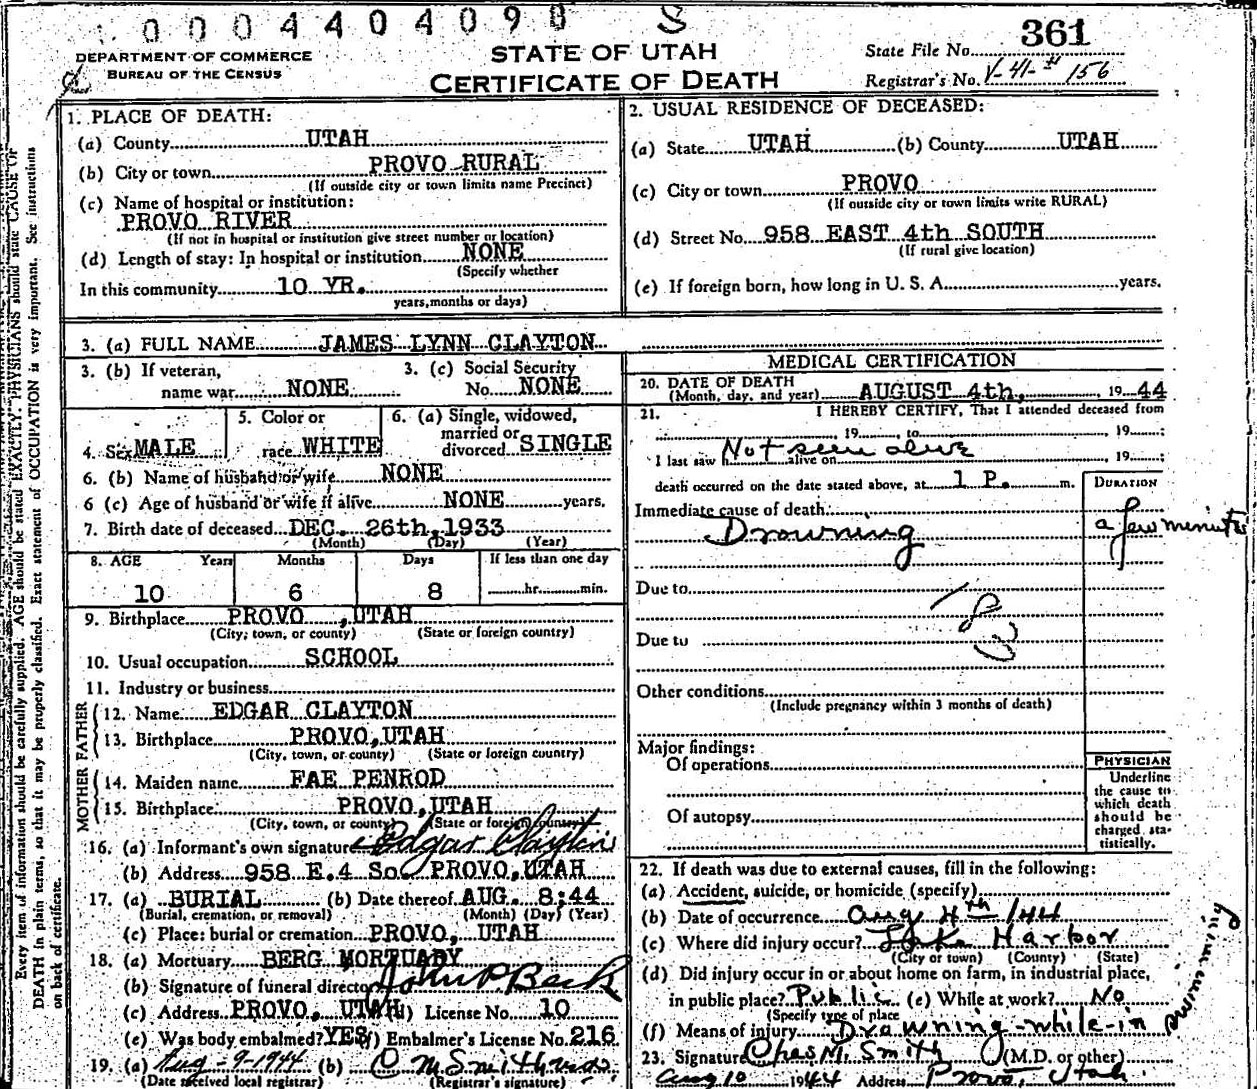 0004404090 S
DEPARTMENT OF COMMERCE
BUREAU OF THE CENSUS
STATE OF UTAH
CERTIFICATE OF DEATH
State File No. 361
Registrar's No. V-41-#156
1. PLACE OF DEATH:
(a) County UTAH
(b) City or town PROVO RURAL
(If outside city or town limits name Precinct)
(c) Name of hospital or institution:
PROVO RIVER
(If not in hospital or institution give street number or location)
(d) Length of stay: In hospital or institution NONE
(Specify whether
In this community 10 YR.
years, months or days)
2. USUAL RESIDENCE OF DECEASED:
(a) State UTAH (b) County UTAH
(c) City or town PROVO
(If outside city or town limits write RURAL)
(d) Street No. 958 EAST 4th SOUTH
(If rural give location)
(e) If foreign born, how long in U. S. A. years.
3. (a) FULL NAME JAMES LYNN CLAYTON
3. (b) If veteran, name war NONE
3. (c) Social Security No. NONE
4. Sex MALE
5. Color or race WHITE
6. (a) Single, widowed, married or divorced SINGLE
6. (b) Name of husband or wife NONE
6 (c) Age of husband or wife if alive NONE years.
7. Birth date of deceased DEC. 26th, 1933
(Month) (Day) (Year)
8. AGE Years Months Days If less than one day
10 6 8 hr. min.
9. Birthplace PROVO, UTAH
(City, town, or county) (State or foreign country)
10. Usual occupation SCHOOL
11. Industry or business
FATHER
12. Name EDGAR CLAYTON
13. Birthplace PROVO, UTAH
(City, town, or county) (State or foreign country)
MOTHER
14. Maiden name FAE PENROD
15. Birthplace PROVO, UTAH
(City, town, or county) (State or foreign country)
16. (a) Informant's own signature Edgar Clayton
(b) Address 958 E. 4 So. PROVO, UTAH
17. (a) BURIAL (b) Date thereof AUG. 8:44
(Burial, cremation, or removal) (Month) (Day) (Year)
(c) Place: burial or cremation PROVO, UTAH
18. (a) Mortuary BERG MORTUARY
(b) Signature of funeral director John P. Beck
(c) Address PROVO, UTAH (d) License No. 10
(e) Was body embalmed? YES (f) Embalmer's License No. 216
19. (a) Aug-9-1944 (b) C M Smith
(Date received local registrar) (Registrar's signature)
MEDICAL CERTIFICATION
20. DATE OF DEATH
(Month, day, and year) AUGUST 4th, 1944
21. I HEREBY CERTIFY, That I attended deceased from
19 to , 19 ;
I last saw h Not seen alive alive on , 19 ;
death occurred on the date stated above, at 1 P. m.
DURATION
Immediate cause of death:
Drowning a few minutes
Due to
183
Due to
Other conditions
(Include pregnancy within 3 months of death)
Major findings:
Of operations
Of autopsy
PHYSICIAN
Underline
the cause to
which death
should be
charged sta-
tistically.
22. If death was due to external causes, fill in the following:
(a) Accident, suicide, or homicide (specify)
(b) Date of occurrence Aug 4th /44
(c) Where did injury occur? Lake Harbor
(City or town) (County) (State)
(d) Did injury occur in or about home on farm, in industrial place,
in public place? Public (e) While at work? No
(Specify type of place
(f) Means of injury Drowning-while-in swimming
23. Signature Chas M. Smith (M.D. or other)
Aug 10 1944 Address Provo, Utah
Every item of information should be carefully supplied. AGE should be stated EXACTLY. PHYSICIANS should state CAUSE OF
DEATH in plain terms, so that it may be properly classified. Exact statement of OCCUPATION is very important. See instructions
on back of certificate.